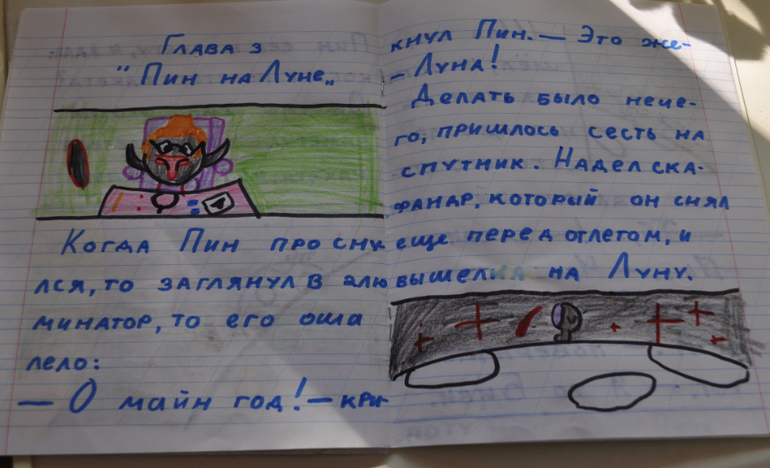 Глава 3
"Пин на Луне„
Когда Пин просну
лся, то заглянул в элю
минатор, то его оша
лело:
— О майн год! — кри-
кнул Пин. — Это же-
- Луна!
Делать было нече-
го, пришлось сесть на
спутник. Надел ска-
фандр, который он снял
еще перед отлетом, и
вышел на Луну.